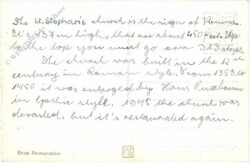 The St. Stephan's church is the sign of Vienna.
It's 137 m high, that are about 450 feet. Up
to the top you must go over 343 steps.
The church was built in the 12th
century in Roman style. From 1359 to
1450 it was enlarged by Hans Puxbaum
in Gothic style. 1945 the church was
devasted, but it's renovated again.
Echte Photographie